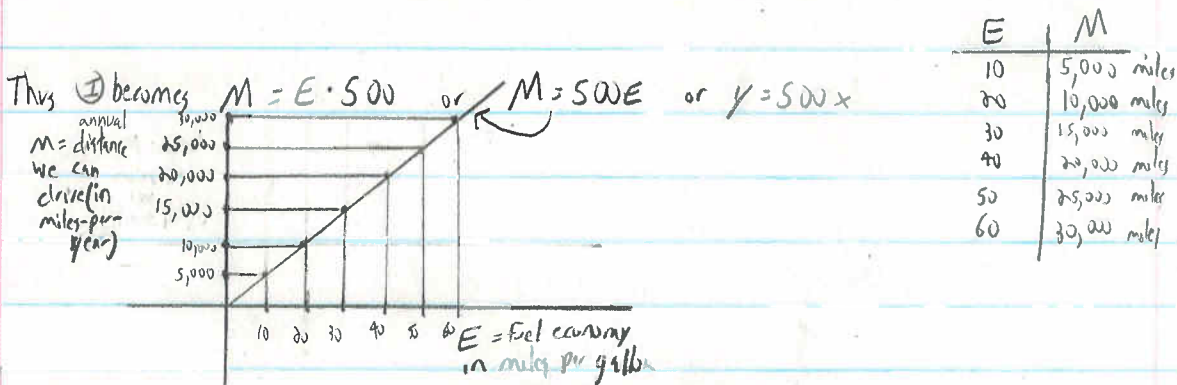 Thus ① becomes M = E · 500 or M = 500E or y = 500x
M = annual distance
we can
drive (in
miles-per-
year)
30,000
25,000
20,000
15,000
10,000
5,000
10 20 30 40 50 60
E = Fuel economy
in miles per gallon
E M
10 5,000 miles
20 10,000 miles
30 15,000 miles
40 20,000 miles
50 25,000 miles
60 30,000 miles